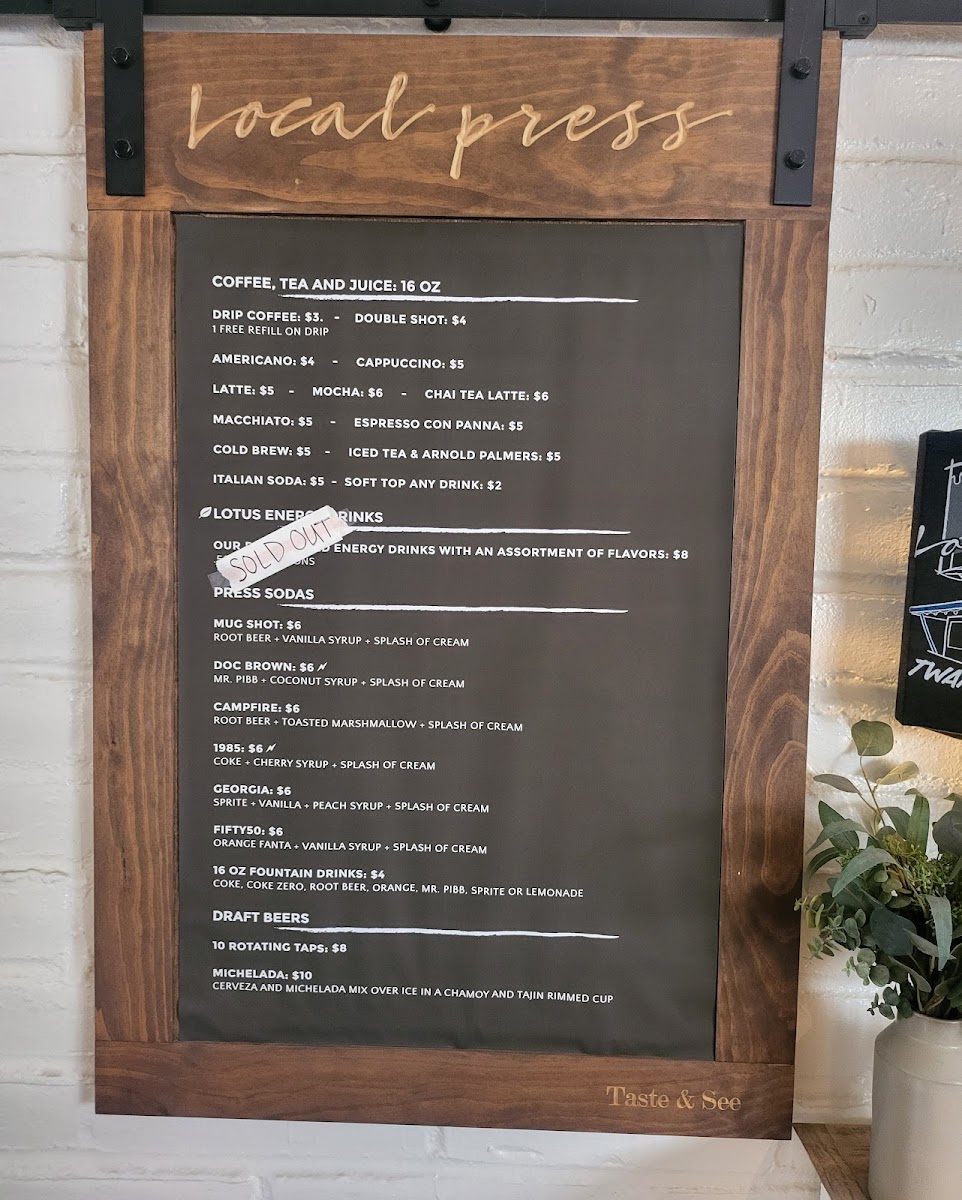 Local press
COFFEE, TEA AND JUICE: 16 OZ
DRIP COFFEE: $3. - DOUBLE SHOT: $4
1 FREE REFILL ON DRIP
AMERICANO: $4 - CAPPUCCINO: $5
LATTE: $5 - MOCHA: $6 - CHAI TEA LATTE: $6
MACCHIATO: $5 - ESPRESSO CON PANNA: $5
COLD BREW: $5 - ICED TEA & ARNOLD PALMERS: $5
ITALIAN SODA: $5 - SOFT TOP ANY DRINK: $2
LOTUS ENERGY DRINKS
SOLD OUT
OUR ENERGY DRINKS WITH AN ASSORTMENT OF FLAVORS: $8
PRESS SODAS
MUG SHOT: $6
ROOT BEER + VANILLA SYRUP + SPLASH OF CREAM
DOC BROWN: $6
MR. PIBB + COCONUT SYRUP + SPLASH OF CREAM
CAMPFIRE: $6
ROOT BEER + TOASTED MARSHMALLOW + SPLASH OF CREAM
1985: $6
COKE + CHERRY SYRUP + SPLASH OF CREAM
GEORGIA: $6
SPRITE + VANILLA + PEACH SYRUP + SPLASH OF CREAM
FIFTY50: $6
ORANGE FANTA + VANILLA SYRUP + SPLASH OF CREAM
16 OZ FOUNTAIN DRINKS: $4
COKE, COKE ZERO, ROOT BEER, ORANGE, MR. PIBB, SPRITE OR LEMONADE
DRAFT BEERS
10 ROTATING TAPS: $8
MICHELADA: $10
CERVEZA AND MICHELADA MIX OVER ICE IN A CHAMOY AND TAJIN RIMMED CUP
Taste & See